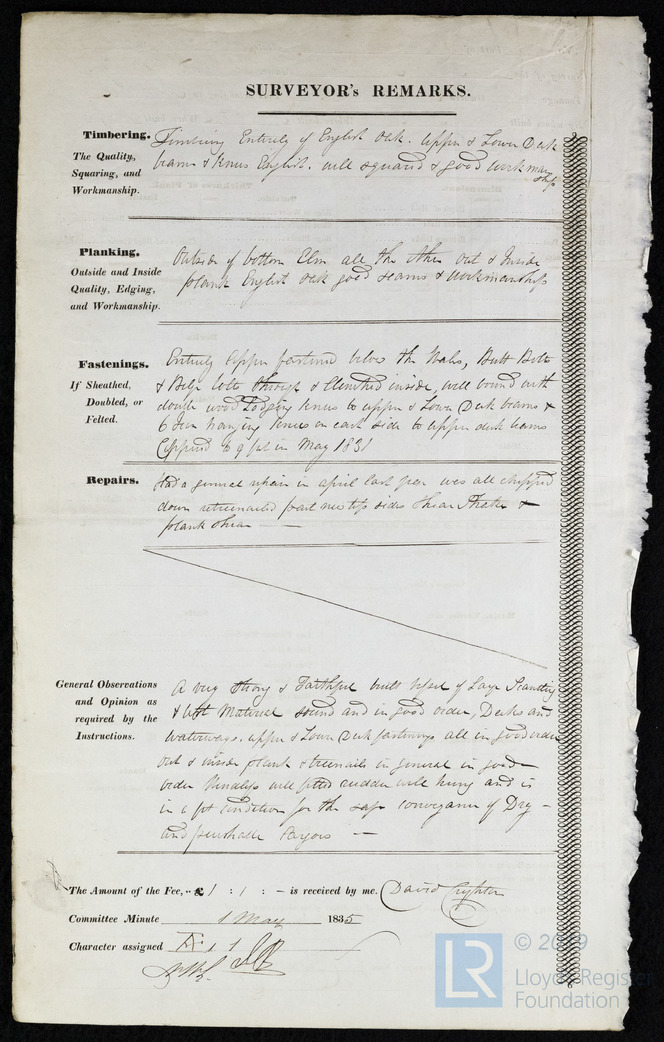 SURVEYOR's REMARKS.
Timbering.
The Quality,
Squaring, and
Workmanship.
Timbering Entirely of English Oak. Upper & Lower Deck
beams & knees English. well squared & good workman
ship
Planking.
Outside and Inside
Quality, Edging,
and Workmanship.
Outside of bottom Elm all the other out & Inside
plank English Oak good seams & Workmanship
Fastenings.
If Sheathed,
Doubled, or
Felted.
Entirely Copper fastened below the Wales, Butt Bolts
& Bilge bolts through & Clenched inside, well bound with
double wood Lodging knees to upper & Lower Deck beams &
6 Iron hanging knees on each side to upper deck beams
Coppered to 9 feet in May 1831
Repairs.
Had a general repair in April last year was all stripped
down retreenailed part new top sides Shear &
plank Shear
General Observations
and Opinion as
required by the
Instructions.
A very strong & Faithful built Vessel of Large Scantling
& best Material sound and in good order, Decks and
waterways. upper & Lower Deck fastenings all in good order
out & inside plank & treenails in general in good
order well fitted rudder well hung and is
in a fit condition for the safe conveyance of Dry
and perishable Cargoes
The Amount of the Fee, .. £1 : 1 : - is received by me. David Crighton
Committee Minute 1 May 1835
Character assigned A 1
LR
© 2019
Lloyd's Register
Foundation